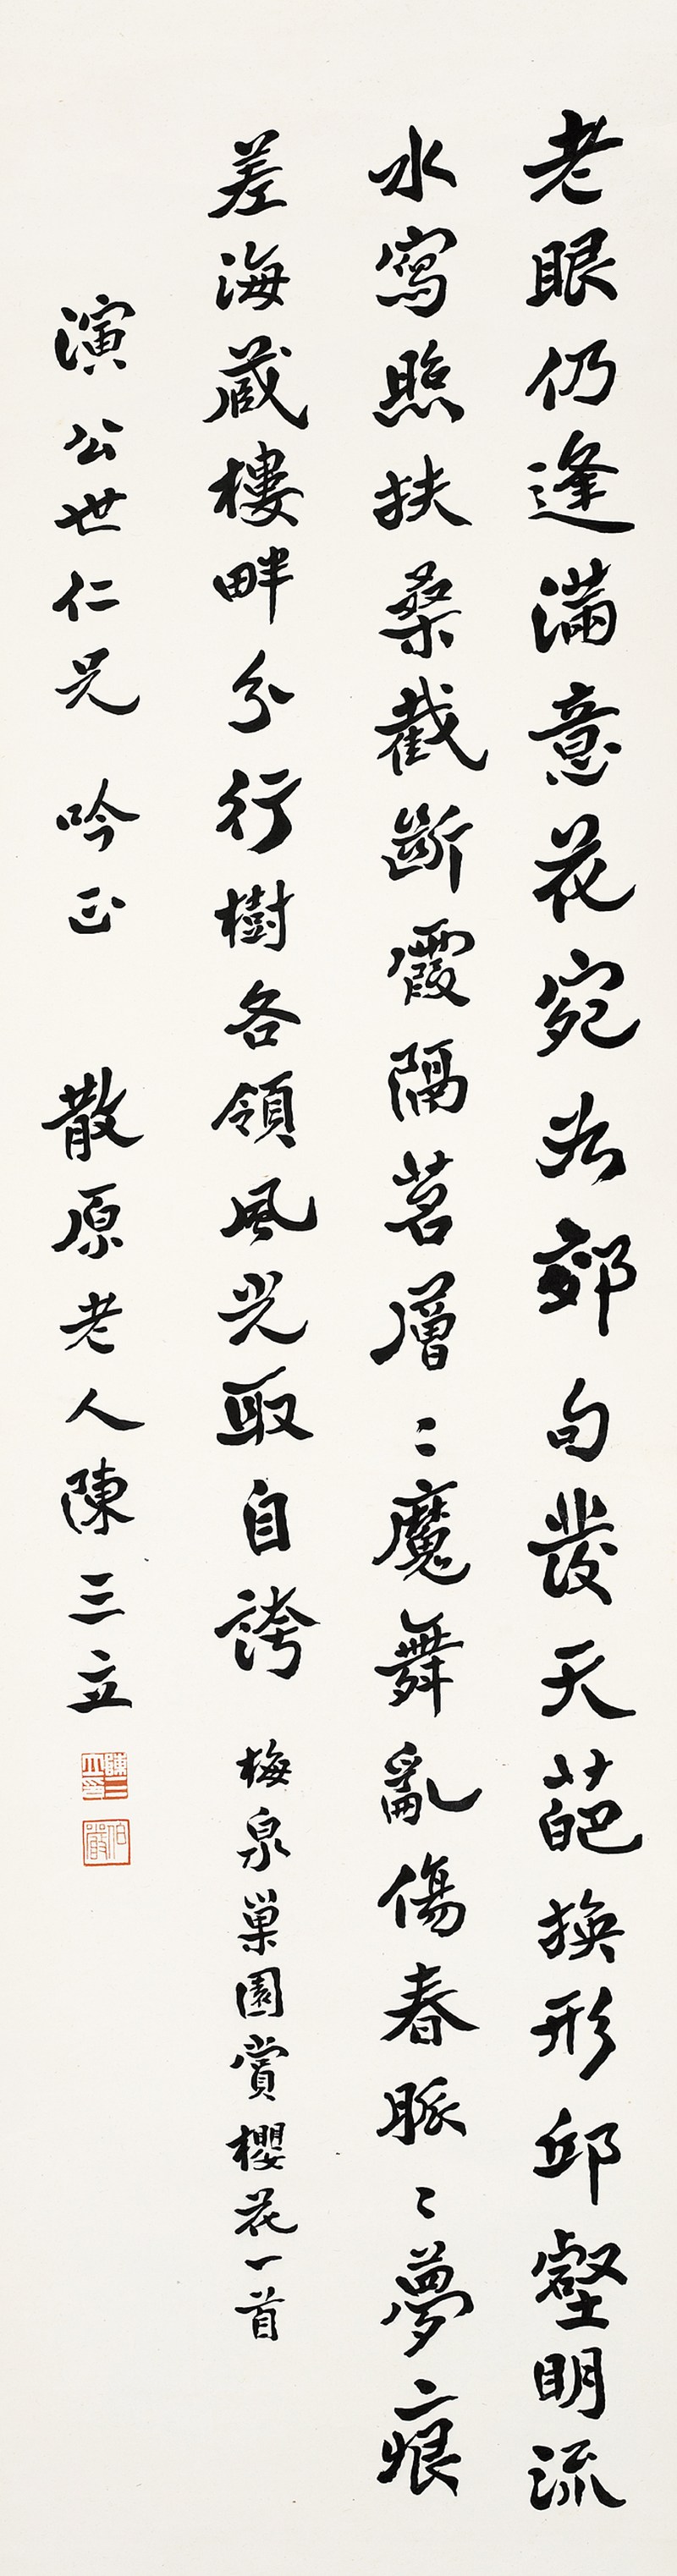 老眼仍逢滿意花宛為郊句發天葩換形邱壑明流
水寫照扶桑截斷霞隔茗層〻魔舞亂傷春脈〻夢痕
差海藏樓畔分行樹各領風光取自誇 梅泉巢園賞櫻花一首
演公世仁兄 吟正 散原老人陳三立
陳三立印
伯嚴